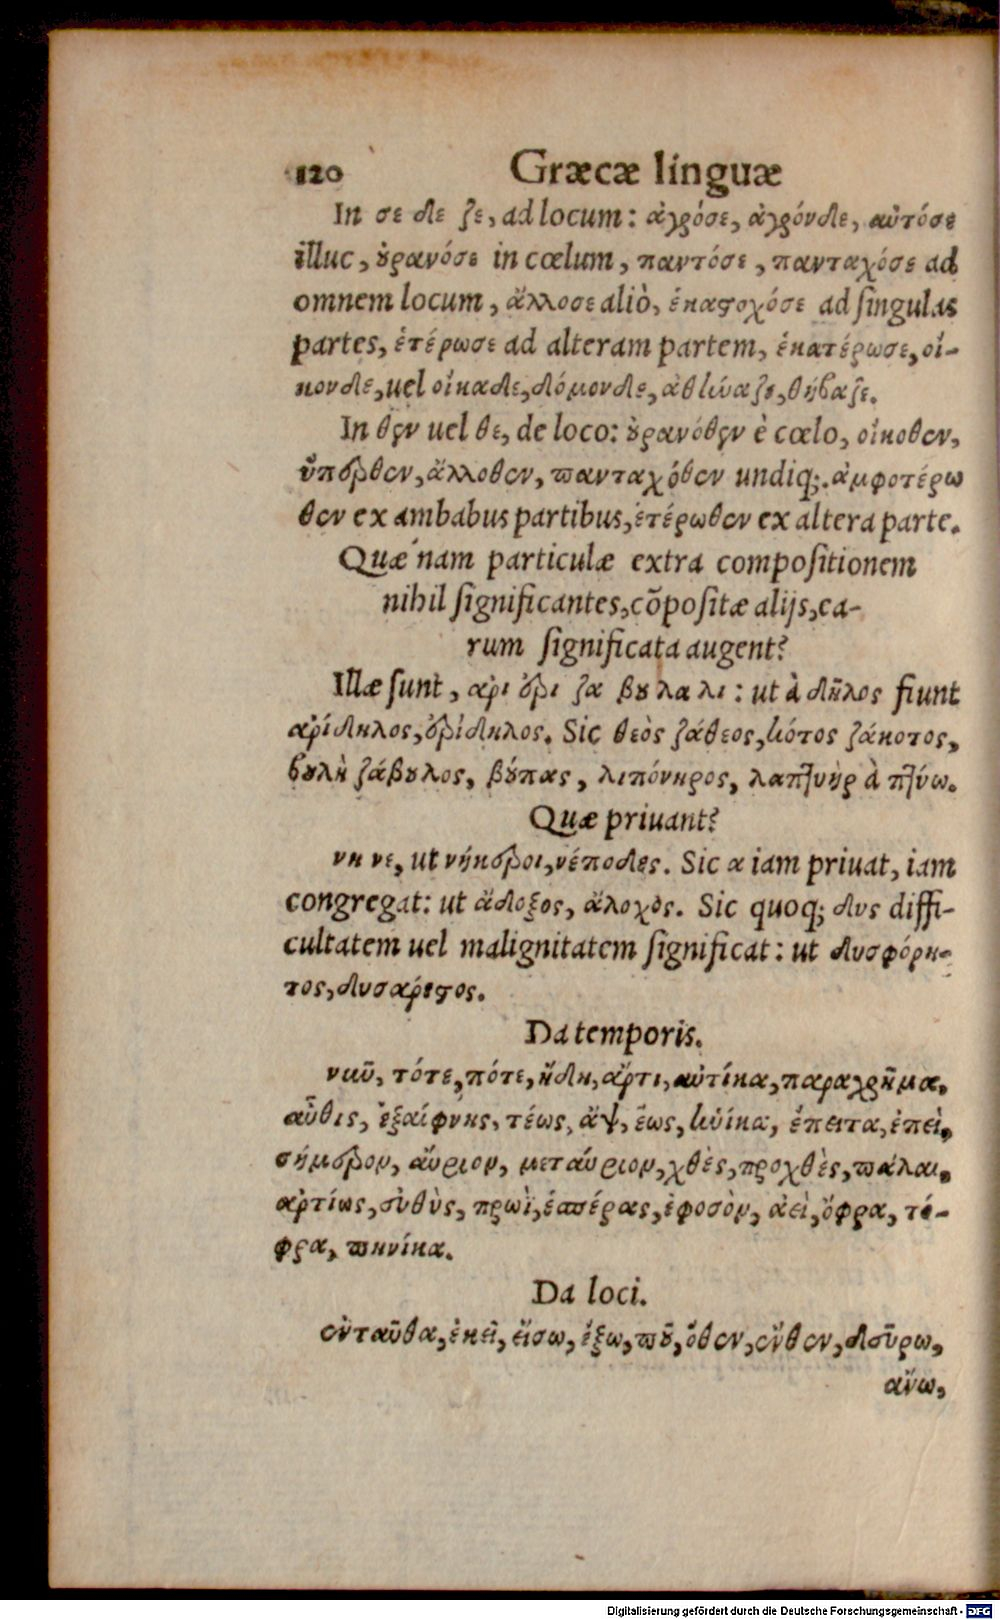 120 Græcæ linguæ
In σε δε ζε, ad locum: ἀγρόσε, ἀγρόνδε, αὐτόσε
illuc, ȣ̓ρανόσε in cœlum, παντόσε, πανταχόσε ad
omnem locum, ἄλλοσε aliò, ἑκαϛοχόσε ad ſingulas
partes, ἑτέρωσε ad alteram partem, ἑκατέρωσε, οἴ-
κονδε, uel οἴκαδε, δόμονδε, ἀθήναζε, θήβαζε.
In θεν uel θε, de loco: ȣ̓ρανόθεν è cœlo, οἴκοθεν,
ὕπερθεν, ἄλλοθεν, πανταχόθεν undiq;. ἀμφοτέρω
θεν ex ambabus partibus, ἑτέρωθεν ex altera parte.
Quæ nam particulæ extra compoſitionem
nihil ſignificantes, cõpoſitæ alijs, ea-
rum ſignificata augent?
Illæ ſunt, αρι ερι ζα βȣ λα λι: ut à δῆλος fiunt
ἀρίδηλος, ἐρίδηλος. Sic θεὸς ζάθεος, κότος ζάκοτος,
βȣλὴ ζάβȣλος, βȣ́πας, λιπόνηρος, λαπτυὴρ à πτύω.
Quæ priuant?
νη νε, ut νήκεροι, νέποδες. Sic α iam priuat, iam
congregat: ut ἄδοξος, ἄλοχος. Sic quoq; δυς diffi-
cultatem uel malignitatem ſignificat: ut δυσφόρη-
τος, δυσαρεϛος.
Da temporis.
νιῦ, τότε, πότε, ἤδη, ἄρτι, αὐτίκα, παραχρῆμα,
αὖθις, ἐξαίφνης, τέως, ἄψ, ἕως, ἡνίκα, ἔπειτα, ἐπεὶ,
σήμερον, αὔριον, μεταύριον, χθὲς, προχθὲς, πάλαι,
ἀρτίως, εὐθὺς, πρωῒ, ἑσπέρας, ἐφοσὸν, ἀεὶ, ὄφρα, τό-
φρα, πηνίκα.
Da loci.
ἐνταῦθα, ἐκεῖ, εἴσω, ἔξω, πȣ͂, ὅθεν, ἔνθεν, δεῦρω,
ἄνω,
Digitalisierung gefördert durch die Deutsche Forschungsgemeinschaft - DFG